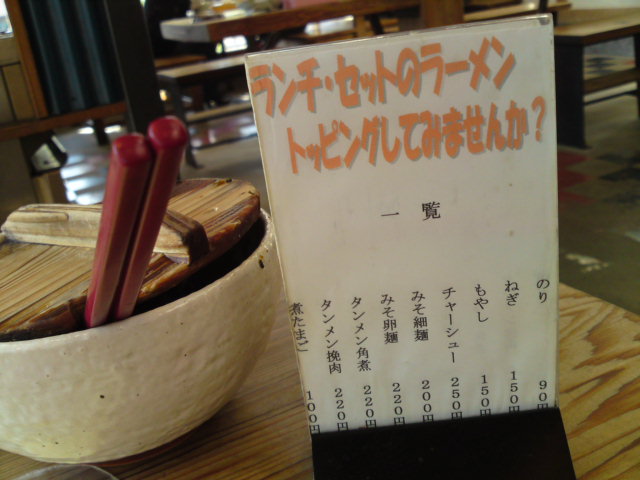 ランチ・セットのラーメン
トッピングしてみませんか？
一覧
のり 90円
ねぎ 150円
もやし 150円
チャーシュー 250円
みそ細麺 200円
みそ卵麺 220円
タンメン角煮 220円
タンメン挽肉 220円
煮たまご 100円